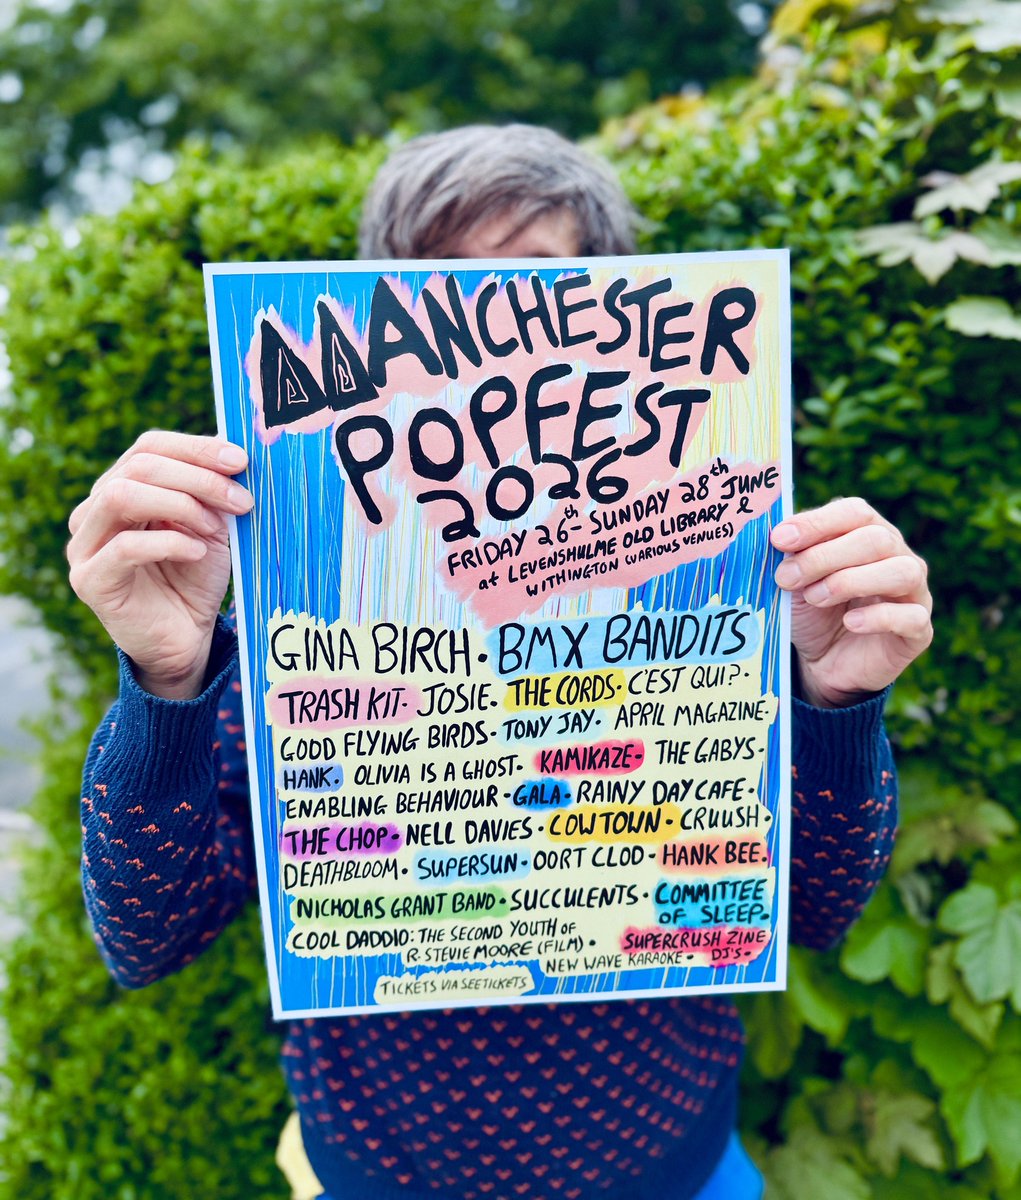 MANCHESTER
POPFEST
2026
FRIDAY 26th - SUNDAY 28th JUNE
at LEVENSHULME OLD LIBRARY &
WITHINGTON (VARIOUS VENUES)
GINA BIRCH · BMX BANDITS
TRASH KIT · JOSIE · THE CORDS · C'EST QUI? ·
GOOD FLYING BIRDS · TONY JAY · APRIL MAGAZINE ·
HANK · OLIVIA IS A GHOST · KAMIKAZE · THE GABYS ·
ENABLING BEHAVIOUR · GALA · RAINY DAY CAFE ·
THE CHOP · NELL DAVIES · COWTOWN · CRUUSH ·
DEATHBLOOM · SUPERSUN · OORT CLOD · HANK BEE ·
NICHOLAS GRANT BAND · SUCCULENTS · COMMITTEE
OF SLEEP ·
COOL DADDIO: THE SECOND YOUTH OF
R. STEVIE MOORE (FILM) · SUPERCRUSH ZINE
DJ'S ·
NEW WAVE KARAOKE ·
TICKETS VIA SEETICKETS